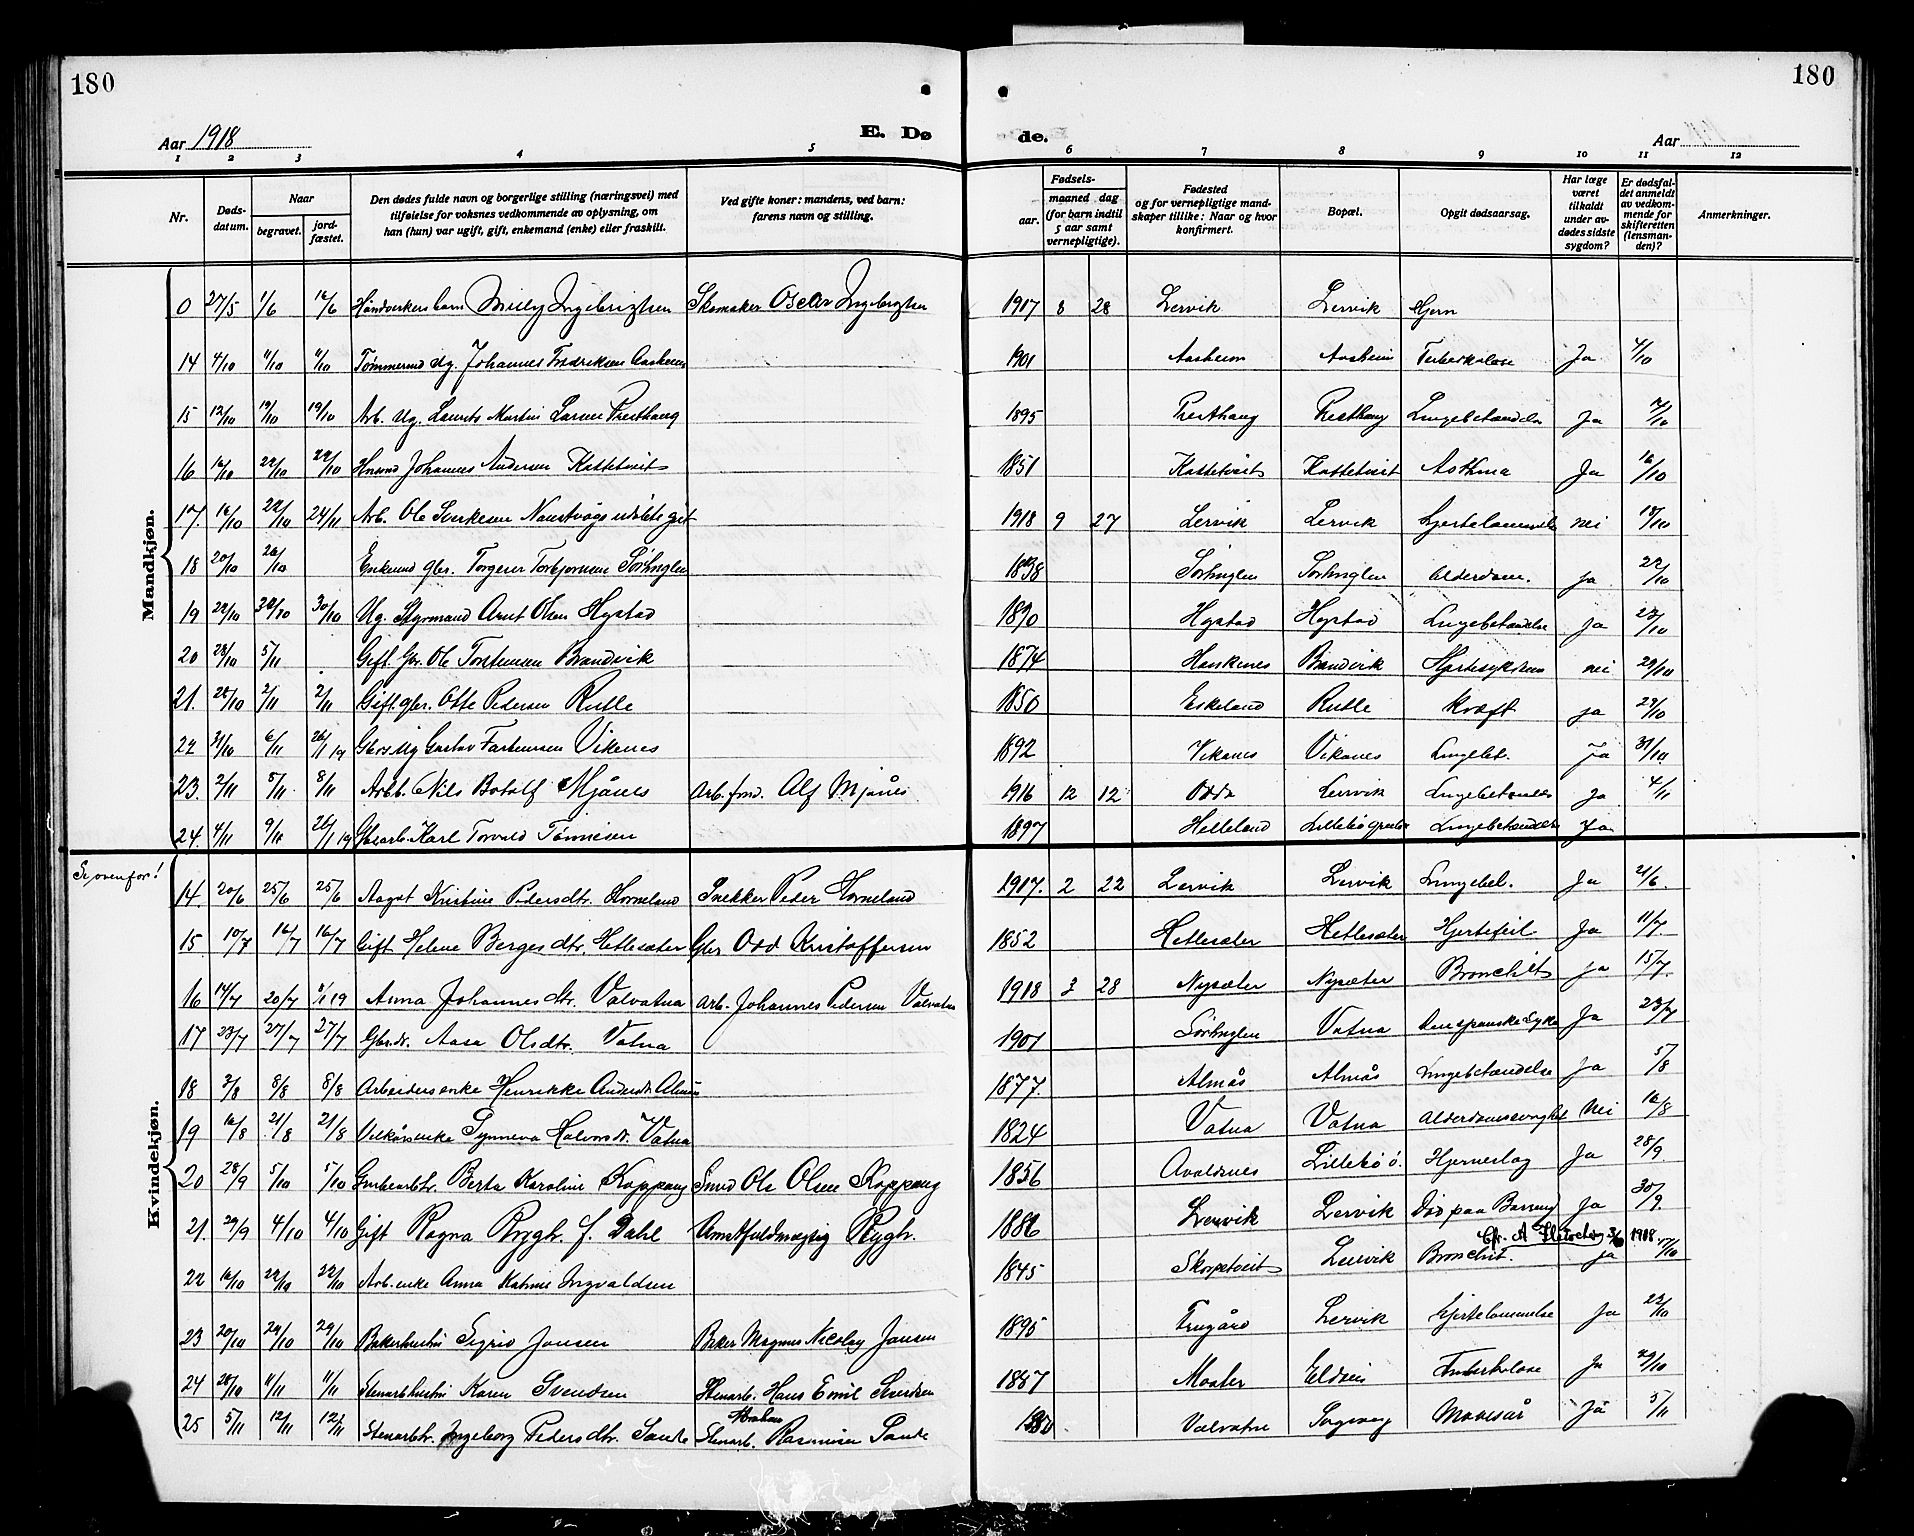 180
180
Aar 1918
E. Dø
de.
Aar
1 2 3 4 5 6 7 8 9 10 11 12
Nr.
Døds-
datum.
Naar
begravet.
jord-
fæstet.
Den dødes fulde navn og borgerlige stilling (næringsvei) med
tilføielse for voksnes vedkommende av oplysning, om
han (hun) var ugift, gift, enkemand (enke) eller fraskilt.
Ved gifte koner: mandens, ved barn:
farens navn og stilling.
Fødsels-
aar. maaned dag
(for barn indtil
5 aar samt
vernepligtige).
Fødested
og for vernepligtige mand-
skaper tillike: Naar og hvor
konfirmert.
Bopæl.
Opgit dødsaarsag.
Har læge
været
tilkaldt
under av-
dødes sidste
sygdom?
Er dødsfal-
det anmeldt
av vedkom-
mende for
skifteretten
(lensman-
den)?
Anmerkninger.
Mandkjøn.
0 27/5 1/6 16/6 Handverkers barn Milly Ingebrigtsen Skomaker Oscar Ingebrigtsen 1917 8 28 Lervik Lervik Hjern
14 4/10 11/10 11/10 Tømmermd ug. Johannes Fredriksen Aasheim 1901 Aasheim Aasheim Tuberkulose Ja 4/10
15 12/10 19/10 19/10 Arb. ug. Laurits Martin Larsen Presthaug 1895 Presthaug Presthaug Lungebetændelse Ja 7/10
16 16/10 22/10 22/10 Johannes Andersen Kattetveit 1851 Kattetveit Kattetveit Asthma Ja 16/10
17. 16/10 22/10 24/11 Arb. Ole Sverkesen Naustvågs 1918 9 27 Lervik Lervik Hjertelammelse nei 18/10
18 20/10 26/10 Enkemd gbr. Torgeir Torbjørnsen Sørhuglen 1838 Sørhuglen Sørhuglen Alderdom. ja 22/10
19 22/10 30/10 30/10 Ug. Styrmand Arnt Olsen Hystad 1890 Hystad Hystad Lungebetændelse ja 23/10
20 28/10 5/11 Gift. Gbr. Ole Torstensen Brandvik 1874 Brandvik Hjertesykdom nei 29/10
21. 28/10 2/11 2/11 Gift. gbr. Otte Pedersen Rutle 1850 Eskeland Rutle Kræft ja 29/10
22 31/10 6/11 26/1 19 Gbrs. Ug Gustav Torstensen Vikenes 1892 Vikanes Vikanes Lungebet. Ja 31/10.
23. 2/11 8/11 8/11 Arbb. Nils Botolf Mjånes Arb.fmd. Alf Mjånes 1916 12 12 Odda Lervik Lungebetændelse Ja 4/11
24. 4/11 9/11 26/1 19 Gbsarb. Karl Torvald Tønnesen 1897 Helleland Lillebø gruber Lungebetændelse Ja
Se ovenfor!
Kvindekjøn.
14. 20/6 25/6 25/6 Aagot Kristine Pedersdtr. Horneland Snekker Peder Horneland 1917. 2 22 Lervik Lervik Lungebet. Ja 21/6.
15. 10/7 16/7 16/7 Gift Helene Bergesdtr. Hetlesæter Gbr Odd Kristoffersen 1852 Hetlesæter Hetlesæter Hjertefeil Ja 11/7
16 14/7 20/7 5/1 19 Anna Johannesdtr. Valvatna Arb. Johannes Pedersen Valvatna 1918 3 28 Nysæter Nysæter Bronchit ja 15/7.
17 23/7 27/7 27/7 Gbr.dr. Aasa Olsdtr. Vatna 1901 Sørhuglen Vatna Den spanske syke Ja 23/7
18 3/8 8/8 8/8 Arbeidersenke Henrikke Andersdtr. Almås 1877. Almås Almås Lungebetændelse Ja 5/8
19 16/8 21/8 21/8 Vilkårsenke Synneva Halvorsdtr. Vatna 1824 Vatna Vatna Alderdomssvaghet Nei 16/8
20 28/9 5/10 5/10 Berta Karoline Koppang Smed Ole Olsen Koppang 1856 Avaldsnes Lillebø ö. Hjerneslag Ja 28/9.
21. 29/9 4/10 4/10 Gift Ragna Rygh. f. Dahl Amtsfuldmægtig Rygh. 1886 Lervik Lervik Død paa Ja 30/9.
Cfr. A 3/6 1918.
22 16/10 22/10 22/10 Arb.enke Anna Katrine Ingvaldsen 1845 Skorpetveit Lervik Bronchit. ja 17/10
23 20/10 29/10 29/10 Bakerhustru Sigrid Jansen Baker Magnus Nicolay Jansen 1895 Frugård Lervik Hjertelammelse Ja 22/10
24 28/10 11/11 11/11 Stenarb.hustru Karen Svendsen Stenarb. Hans Emil Svendsen 1887 Moster Eldøen Tuberkulose Ja 29/10
25 5/11 12/11 12/11 Stenarbdr. Ingeborg Pedersdtr. Sande Stenarb. Abraham Rasmussen Sande Valvatne Sagvaag Mavesår Ja 5/11